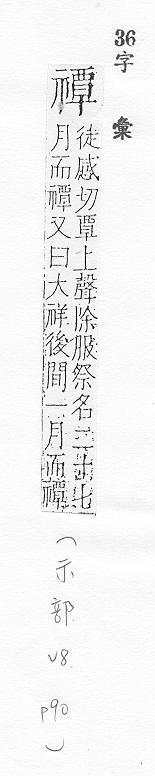 36
字彙
禫
徒感切覃上聲除服祭名二十七
月而禫又曰大祥後間一月而禫
(示部 V8 P90)